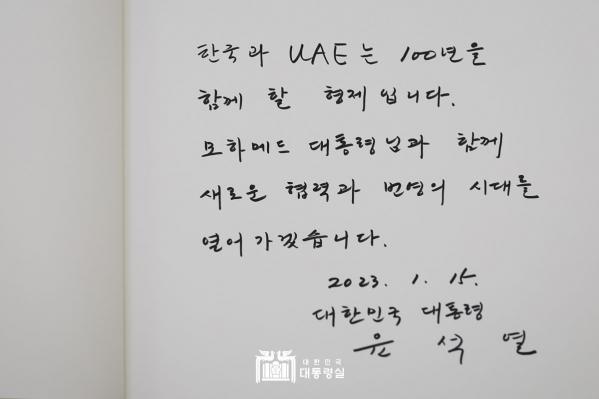 한국과 UAE는 100년을
함께 할 형제입니다.
모하메드 대통령님과 함께
새로운 협력과 번영의 시대를
열어가겠습니다.
2023. 1. 15.
대한민국 대통령
윤 석 열
대한민국
대통령실